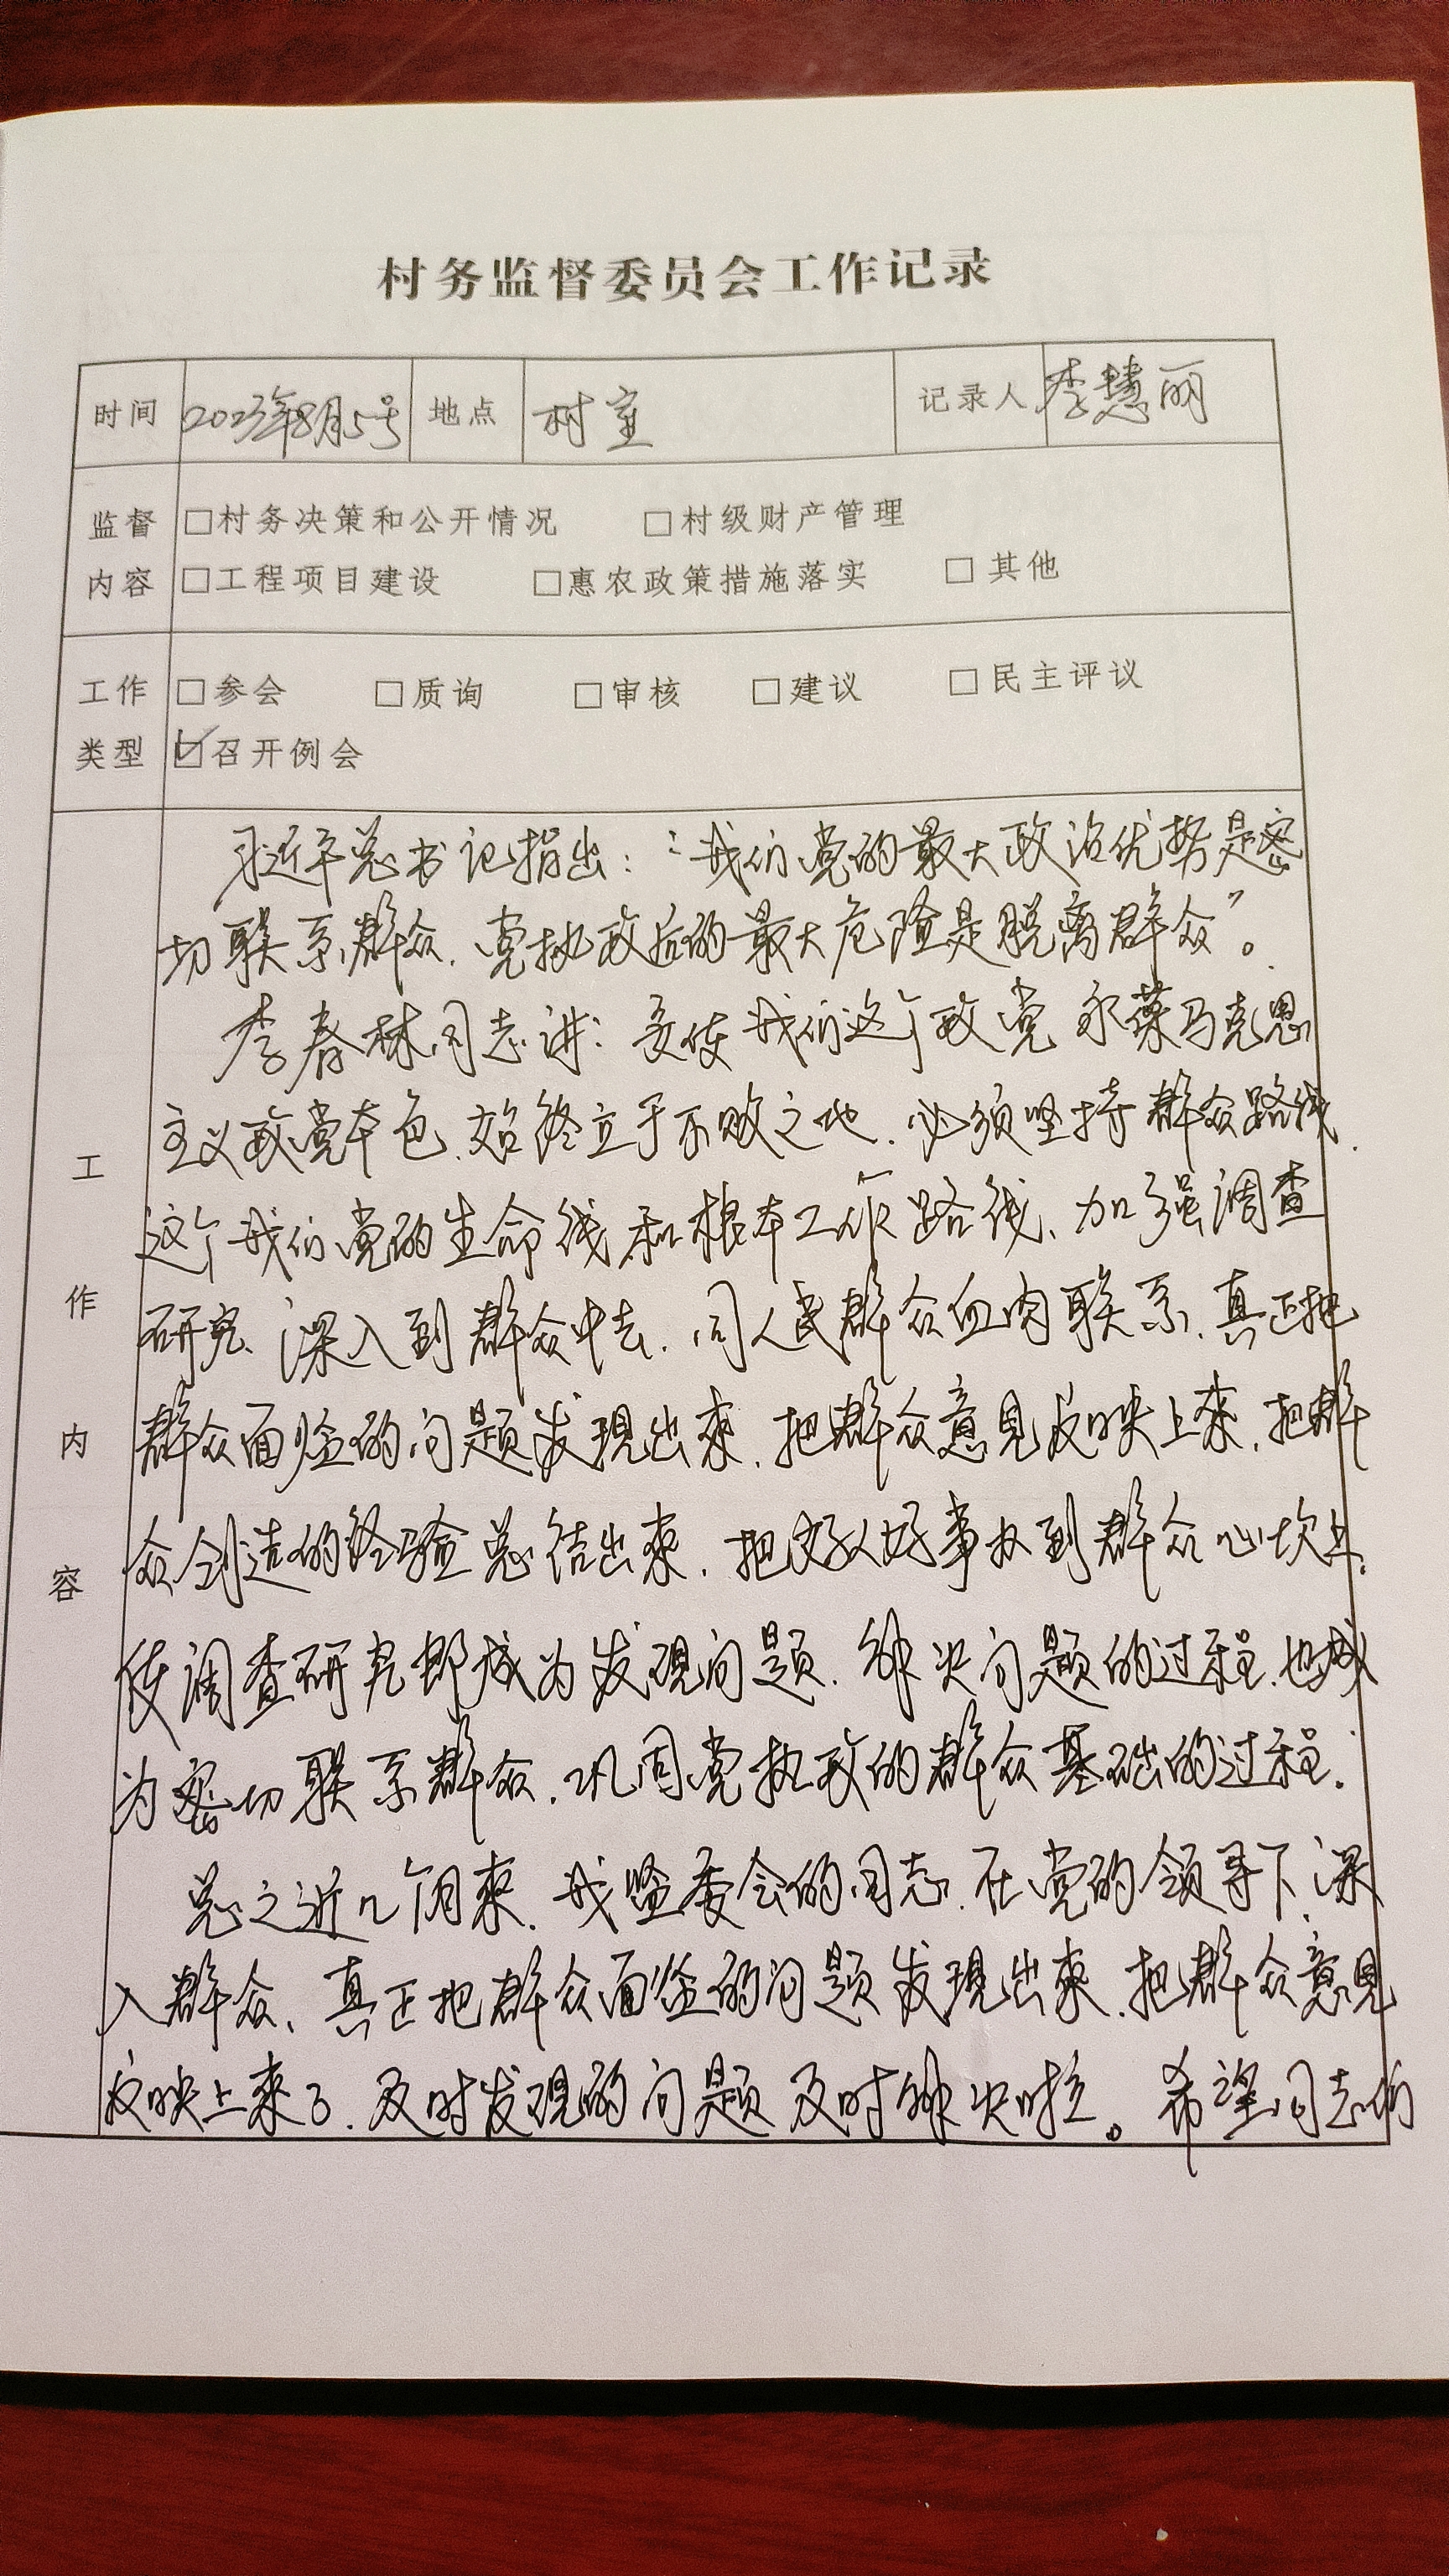 村务监督委员会工作记录
时间 2023年8月5号 地点 村室 记录人 李慧丽
监督 □村务决策和公开情况 □村级财产管理
内容 □工程项目建设 □惠农政策措施落实 □其他
工作 □参会 □质询 □审核 □建议 □民主评议
类型 ☑召开例会
工作内容
习近平总书记指出：“我们党的最大政治优势是密
切联系群众，党执政后的最大危险是脱离群众”。
李春林同志讲：要使我们这个政党永葆马克思
主义政党本色，始终立于不败之地，必须坚持群众路线，
这个我们党的生命线和根本工作路线、加强调查
研究、深入到群众中去，同人民群众血肉联系，真正把
群众面临的问题发现出来，把群众意见反映上来，把群
众创造的经验总结出来，把好人好事办到群众心坎上，
使调查研究都成为发现问题，解决问题的过程，也成
为密切联系群众，巩固党执政的群众基础的过程。
总之近几个月来，我监委会的同志，在党的领导下，深
入群众、真正把群众面临的问题发现出来，把群众意见
反映上来了，及时发现的问题及时解决啦。希望同志们